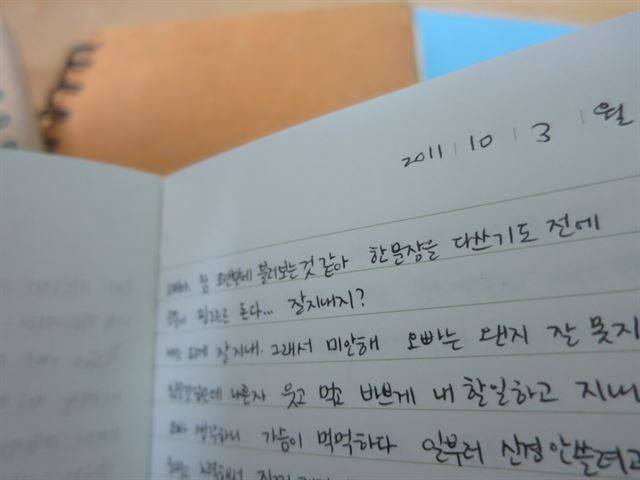 2011 10 3 월
참 오랜만에 불러보는것 같아 한문장을 다쓰기도 전에
핑그르르 돈다... 잘지내지?
잘지내. 그래서 미안해 오빠는 왠지 잘 못지
나혼자 웃고 먹고 바쁘게 내 할일하고 지내
생각하니 가슴이 먹먹하다 일부러 신경안쓸려고